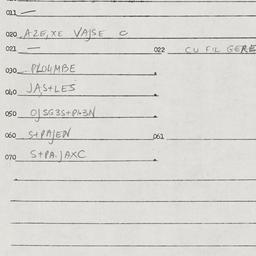 011 —
020 AZE,XE VAJSE C
021 — 022 CU FIL GERE
030 PLO4MBE
040 JAS+LES
050 OJSG3S+P43N
060 S+PAJEN 061
070 S+PA.JAXC